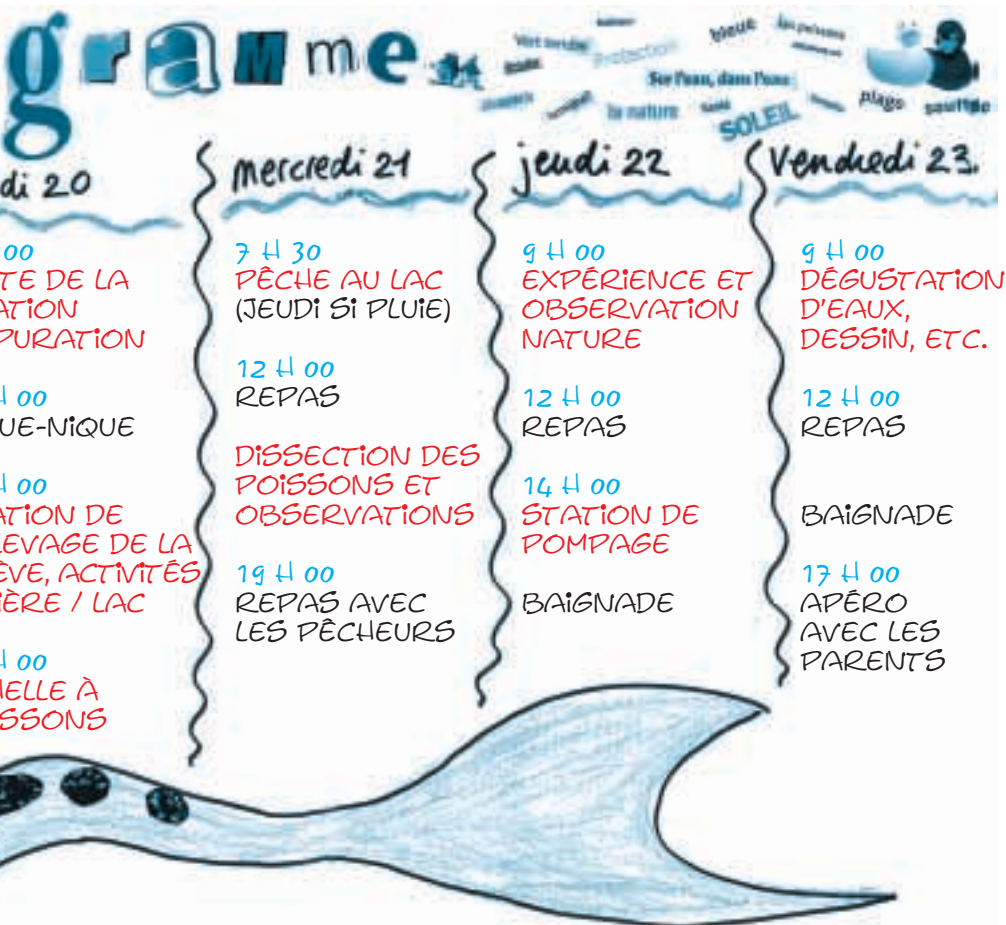 gramme
bleue
Protection
Sur l'eau, dans l'eau
la nature
SOLEIL
plage
di 20
00
TE DE LA
ATION
PURATION
H 00
UE-NIQUE
H 00
ATION DE
LEVAGE DE LA
ÈVE, ACTIVITÉS
IÈRE / LAC
H 00
HELLE À
ISSONS
mercredi 21
7 H 30
PÊCHE AU LAC
(JEUDI SI PLUIE)
12 H 00
REPAS
DISSECTION DES
POISSONS ET
OBSERVATIONS
19 H 00
REPAS AVEC
LES PÊCHEURS
jeudi 22
9 H 00
EXPÉRIENCE ET
OBSERVATION
NATURE
12 H 00
REPAS
14 H 00
STATION DE
POMPAGE
BAIGNADE
Vendredi 23.
9 H 00
DÉGUSTATION
D'EAUX,
DESSIN, ETC.
12 H 00
REPAS
BAIGNADE
17 H 00
APÉRO
AVEC LES
PARENTS